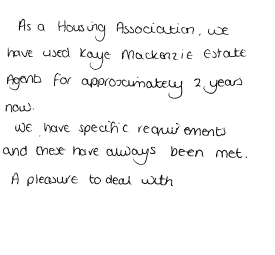 As a Housing Association, we
have used Kaye Mackenzie Estate
Agents for approximately 2 years
now.
We have specific requirements
and these have always been met.
A pleasure to deal with